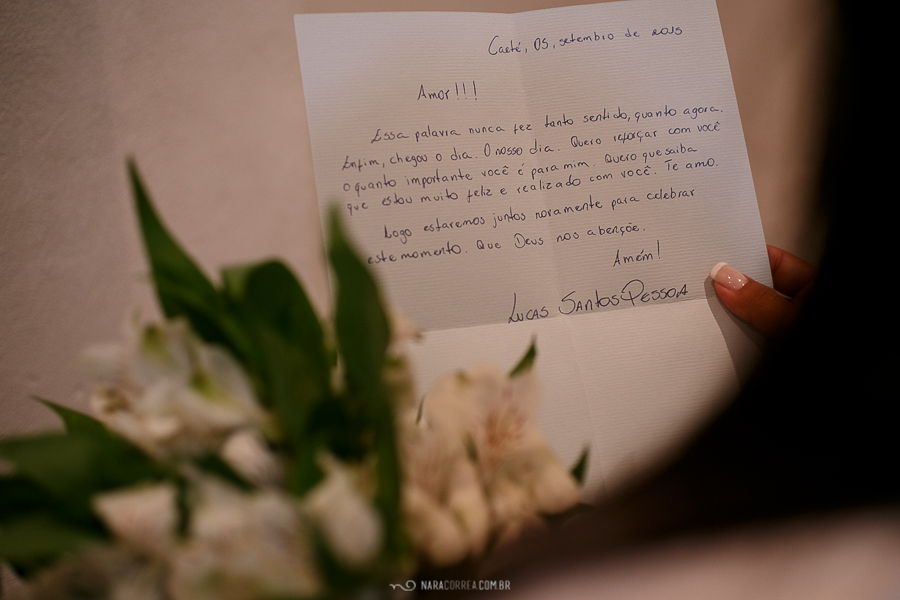 Caeté, 05, setembro de 2015
Amor!!!
Essa palavra nunca fez tanto sentido, quanto agora.
Enfim, chegou o dia. O nosso dia. Quero reforçar com você
o quanto importante você é para mim. Quero que saiba
que estou muito feliz e realizado com você. Te amo.
Logo estaremos juntos novamente para celebrar
este momento. Que Deus nos abençoe.
Amém!
Lucas Santos Pessoa
NARACORREA.COM.BR